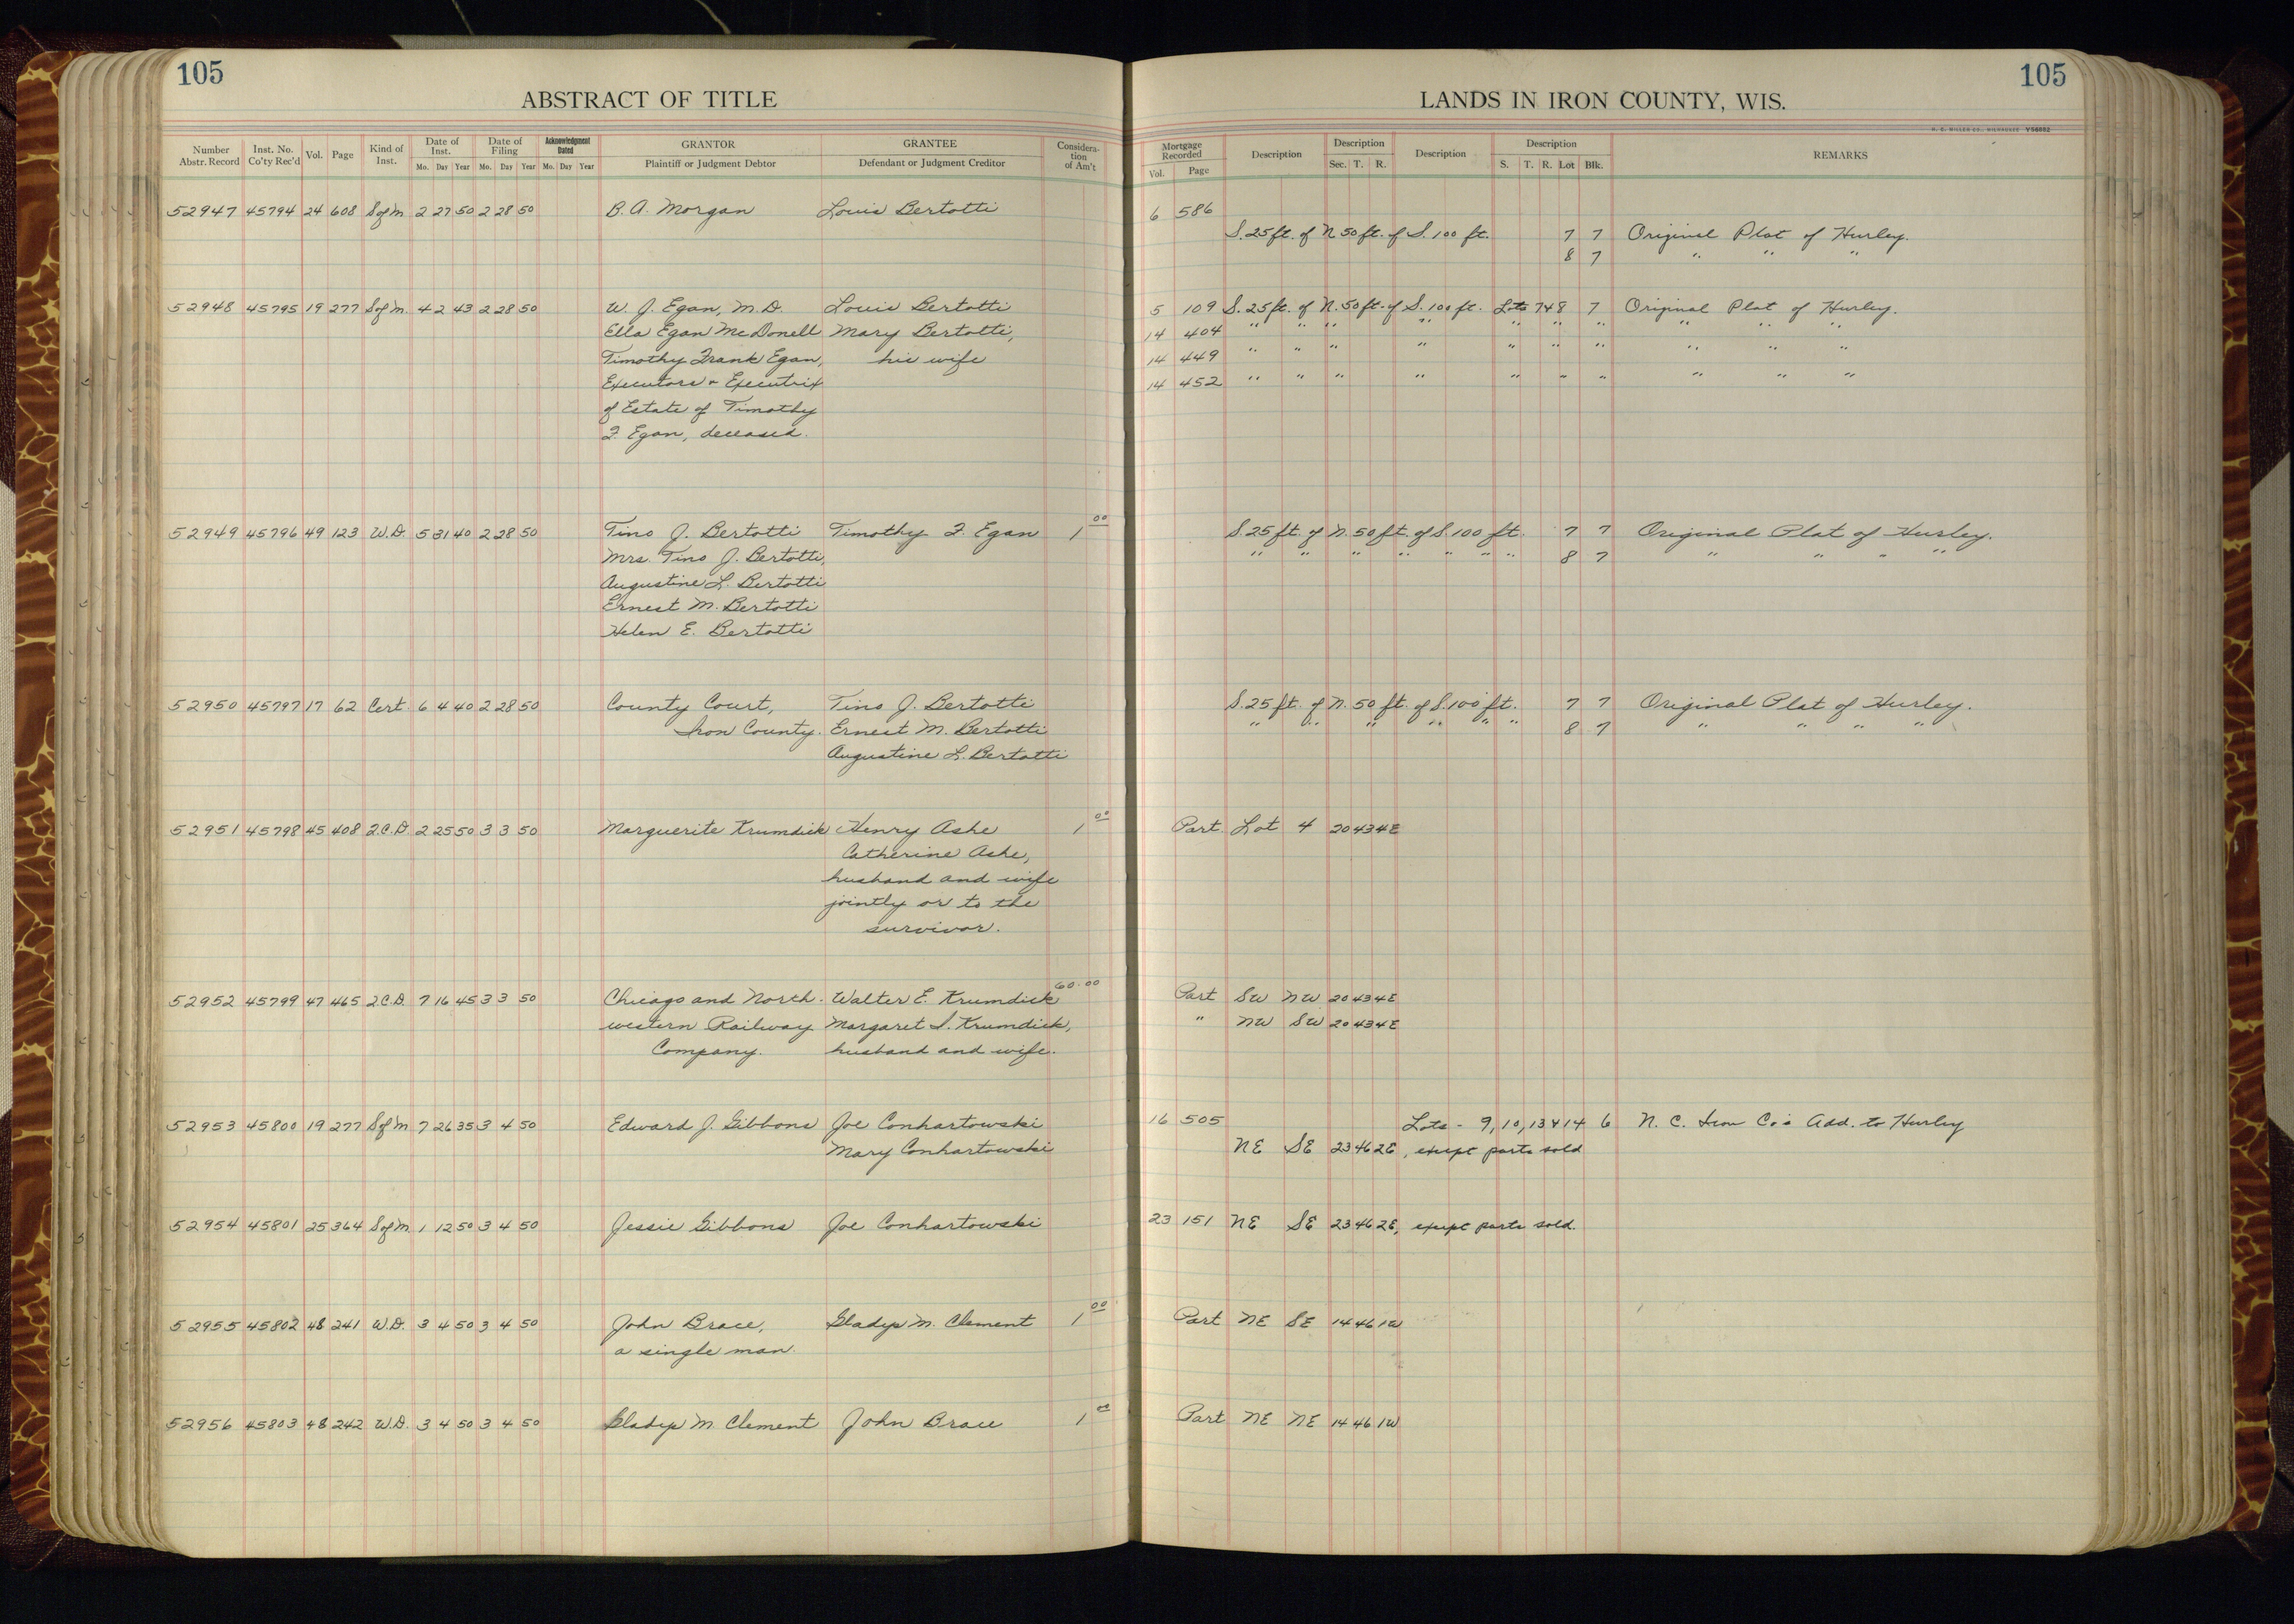 105
ABSTRACT OF TITLE
Number Abstr. Record | Inst. No. Co'ty Rec'd | Vol. | Page | Kind of Inst. | Date of Inst. Mo. Day Year | Date of Filing Mo. Day Year | Acknowledgment Dated Mo. Day Year | GRANTOR Plaintiff or Judgment Debtor | GRANTEE Defendant or Judgment Creditor | Consideration of Am't
52947 45794 24 608 S of M 2 27 50 2 28 50 B. A. Morgan Louis Bertotti
52948 45795 19 277 S of M. 4 2 43 2 28 50 W. J. Egan, M.D. Louis Bertotti
Ella Egan McDonell Mary Bertotti,
Timothy Frank Egan, his wife
Executors & Executrix
of Estate of Timothy
F. Egan, deceased.
52949 45796 49 123 W.D. 5 31 40 2 28 50 Tino J. Bertotti Timothy F. Egan 1 00
Mrs. Tino J. Bertotti,
Augustine L. Bertotti
Ernest M. Bertotti
Helen E. Bertotti
52950 45797 17 62 Cert. 6 4 40 2 28 50 County Court, Tino J. Bertotti
Iron County. Ernest M. Bertotti
Augustine L. Bertotti
52951 45798 45 408 2.C.D. 2 25 50 3 3 50 Marguerite Krumdick Henry Ashe 1 00
Catherine Ashe,
husband and wife
jointly or to the
survivor.
52952 45799 47 465 2.C.D. 7 16 45 3 3 50 Chicago and North- Walter E. Krumdick 60.00
western Railway Margaret I. Krumdick,
Company. husband and wife.
52953 45800 19 277 S of M 7 26 35 3 4 50 Edward J. Gibbons Joe Conhartowski
Mary Conhartowski
52954 45801 25 364 S of M. 1 12 50 3 4 50 Jessie Gibbons Joe Conhartowski
52955 45802 48 241 W.D. 3 4 50 3 4 50 John Brace, Gladys M. Clement 1 00
a single man.
52956 45803 48 242 W.D. 3 4 50 3 4 50 Gladys M Clement John Brace 1
105
LANDS IN IRON COUNTY, WIS.
H. C. MILLER CO., MILWAUKEE V56882
Mortgage Recorded Vol. Page | Description | Description Sec. T. R. | Description | Description S. T. R. Lot Blk. | REMARKS
6 586
S. 25 ft. of N 50 ft. of S. 100 ft. 7 7 Original Plat of Hurley.
8 7 " " "
5 109 S. 25 ft. of N. 50 ft. of S. 100 ft. Lots 7 & 8 7 Original Plat of Hurley.
14 404 " " " " " " " " " "
14 449 " " " " " " " " " "
14 452 " " " " " " " " " "
S. 25 ft. of N. 50 ft. of S. 100 ft. 7 7 Original Plat of Hurley.
" " " " " " 8 7 " " " "
S. 25 ft. of N. 50 ft. of S. 100 ft. 7 7 Original Plat of Hurley.
" " " " " " 8 7 " " " "
Part Lot 4 20 43 4E
Part SW NW 20 43 4E
" NW SW 20 43 4E
16 505 Lots - 9, 10, 13 & 14 6 N. C. Iron Co's Add. to Hurley
NE SE 23 46 2E, except parts sold
23 151 NE SE 23 46 2E, except parts sold.
Part NE SE 14 46 1W
Part NE NE 14 46 1W